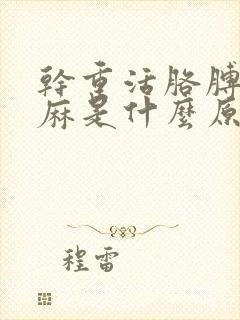 幹重活胳膊
麻是什麼原
程雷